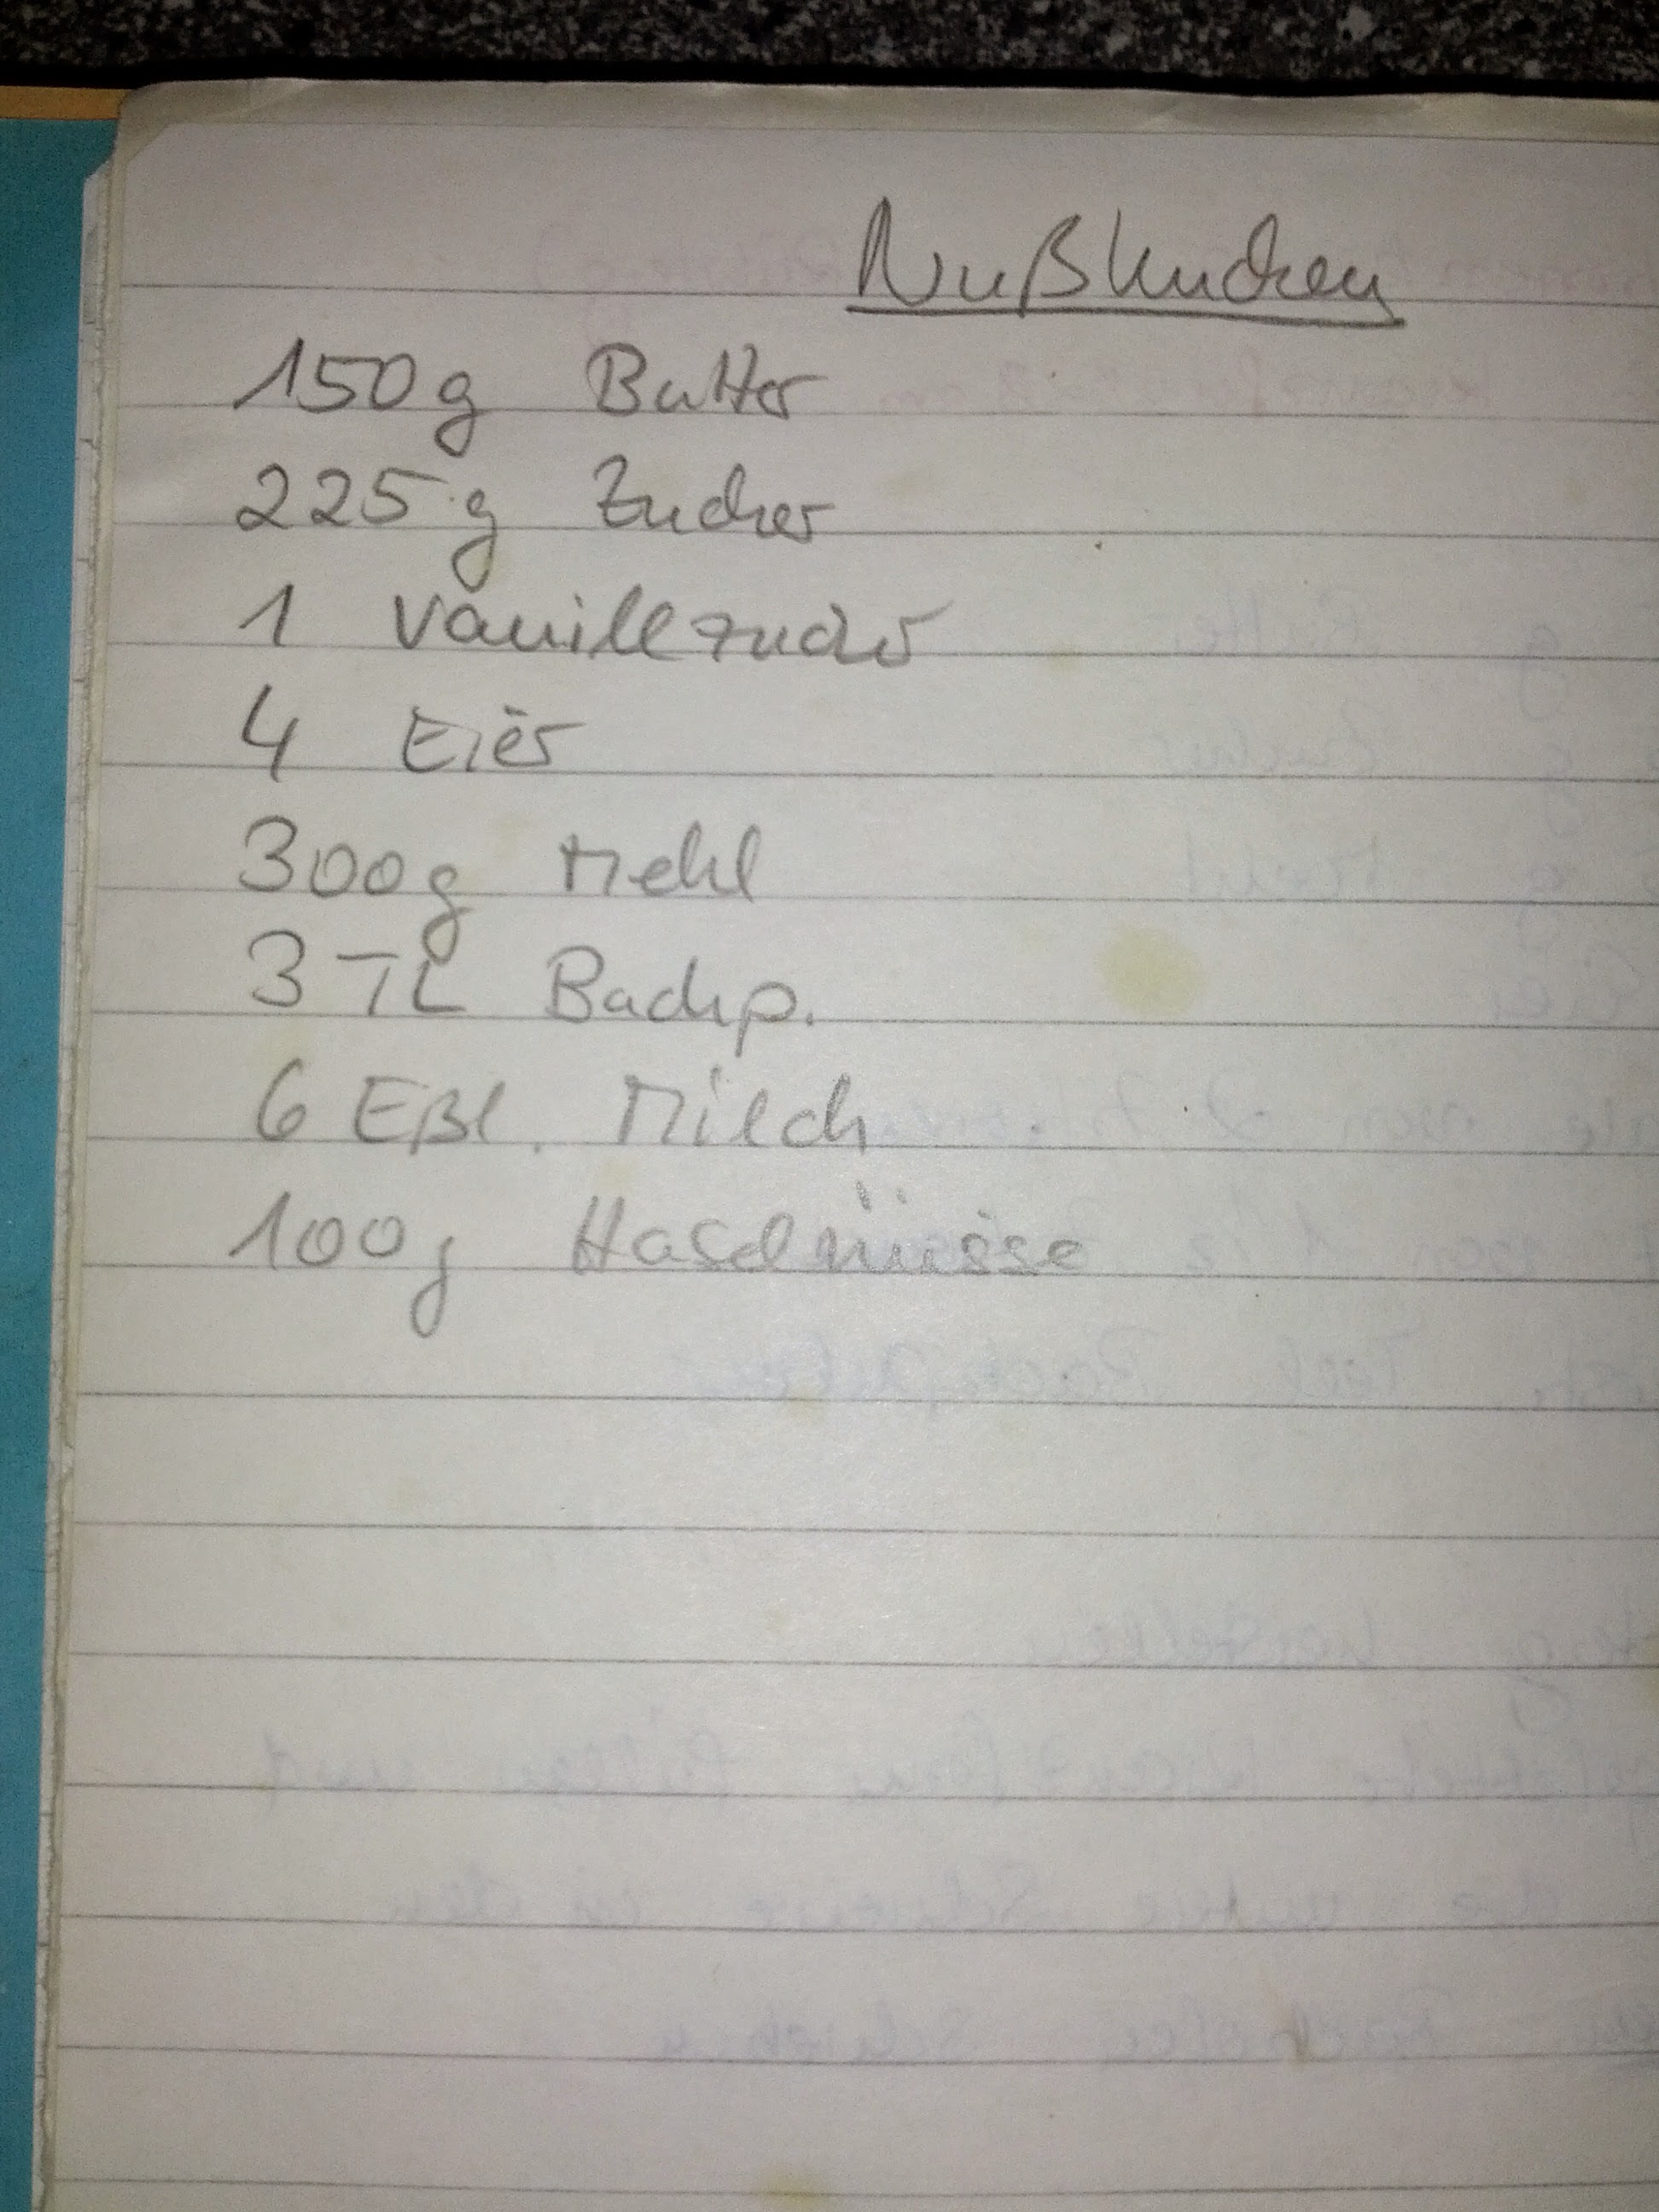 Nußkuchen
150g Butter
225g Zucker
1 Vanillzucker
4 Eier
300g Mehl
3 TL Backp.
6 Eßl. Milch
100g Haselnüsse